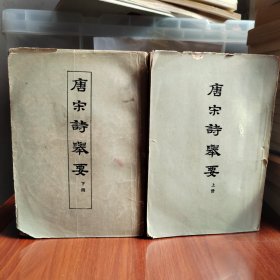 唐宋詩舉要
下册
唐宋詩舉要
上册